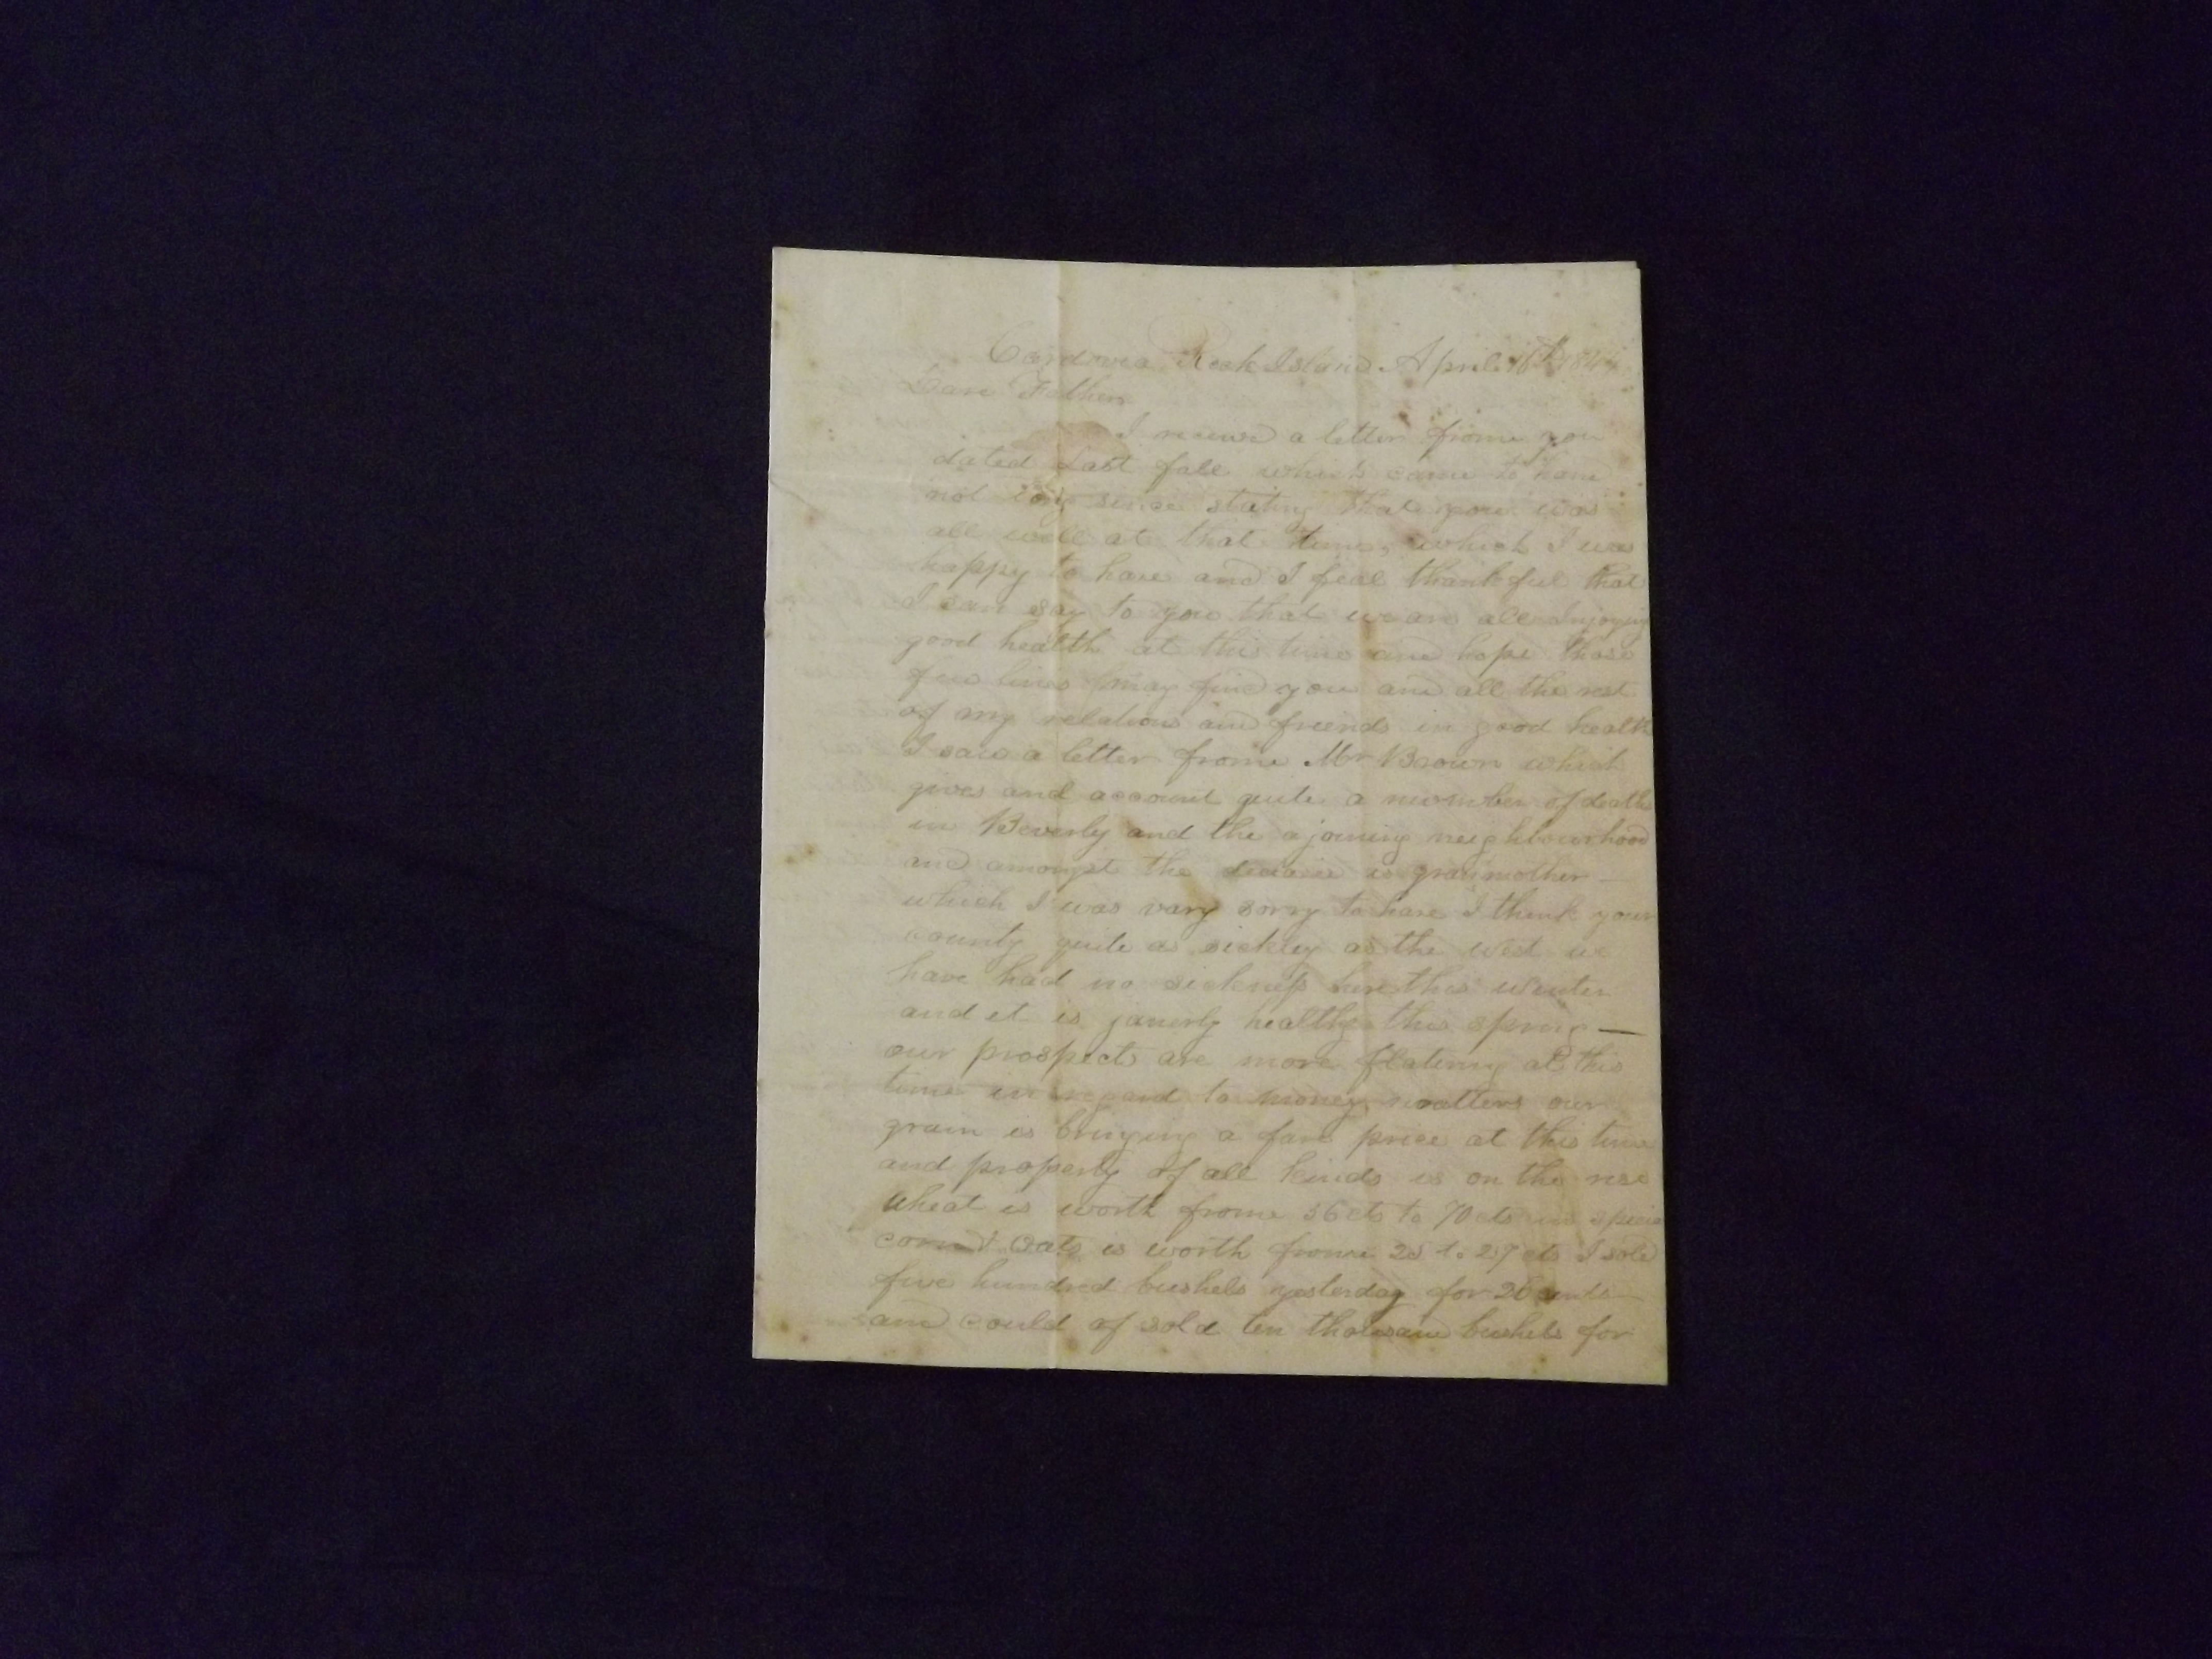 Cordova Rock Island April 16th 1844
Dare Father
I receive a letter frome you
dated Last fall which came to hand
not long since stating that you was
all well at that time, which I was
happy to hare and I feal thankful that
I can say to you that we are all Injoying
good health at this time and hope those
few lines may find you and all the rest
of my relations and freends in good health
I saw a letter frome Mr Brown which
gives and account quite a number of deaths
in Beverly and the ajoining neighbourhood
and amongst the is granmother
which I was vary sorry to hare I think your
county quite as sickley as the west we
have had no sickness here this winter
and it is healthy this spring
our prospects are more flatering at this
time in regard to money matters our
grain is bringing a fare price at this time
and property of all kinds is on the rise
wheat is worth frome 56 cts to 70 cts in specie
corn & Oats is worth frome 25 to 27 cts I sold
five hundred bushels yesterday for 26 cents
and could of sold ten thousand bushels for